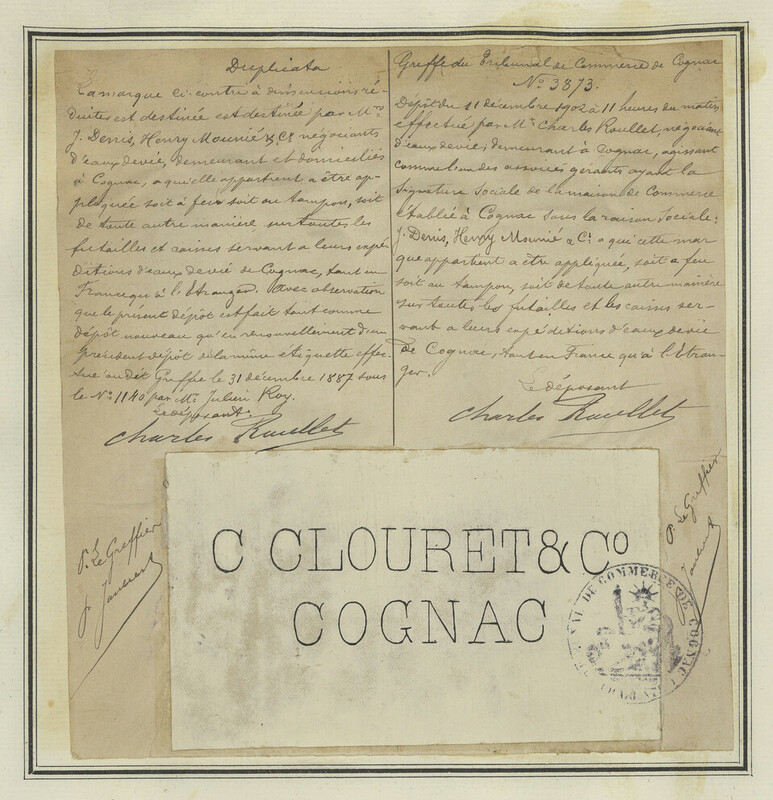 Duplicata
La marque ci-contre à dimensions ré-
duites est destinée est destinée par Mrs
J. Denis, Henry Mounié & Co négociants
d'eaux de vie, demeurant et domiciliés
à Cognac, a qu'elle appartient a être ap-
pliquée soit à feu soit au tampon, soit
de toute autre manière sur toutes les
futailles et caisses servant a leurs expé
ditions d'eaux de vie de Cognac, tant en
France qu'à l'Etranger. Avec observation
que le présent dépôt est fait tant comme
dépôt nouveau qu'en renouvellement d'un
précédent dépôt de la même étiquette effec
tué au dit Greffe le 31 décembre 1887 sous
le No 1140 par Mr Julien Roy.
Le déposant.
Charles Roullet
Greffe du Tribunal de Commerce de Cognac
No 3873.
Dépôt du 11 décembre 1902 à 11 heures du matin
effectué par Mr Charles Roullet, négociant
d'eaux de vie, demeurant à Cognac, agissant
comme l'un des associés gérants ayant la
signature sociale de la maison de Commerce
établie à Cognac sous la raison sociale:
J. Denis, Henry Mounié & Co a qui cette mar
que appartient a être appliquée, soit a feu
soit au tampon, soit de toute autre manière
sur toutes les futailles et les caisses ser-
vant a leurs expéditions d'eaux de vie
de Cognac, tant en France qu'à l'Etran-
ger.
Le déposant
Charles Roullet
P. Le Greffier
P. Le Greffier
C CLOURET & Co
COGNAC
TRIBUNAL DE COMMERCE DE COGNAC